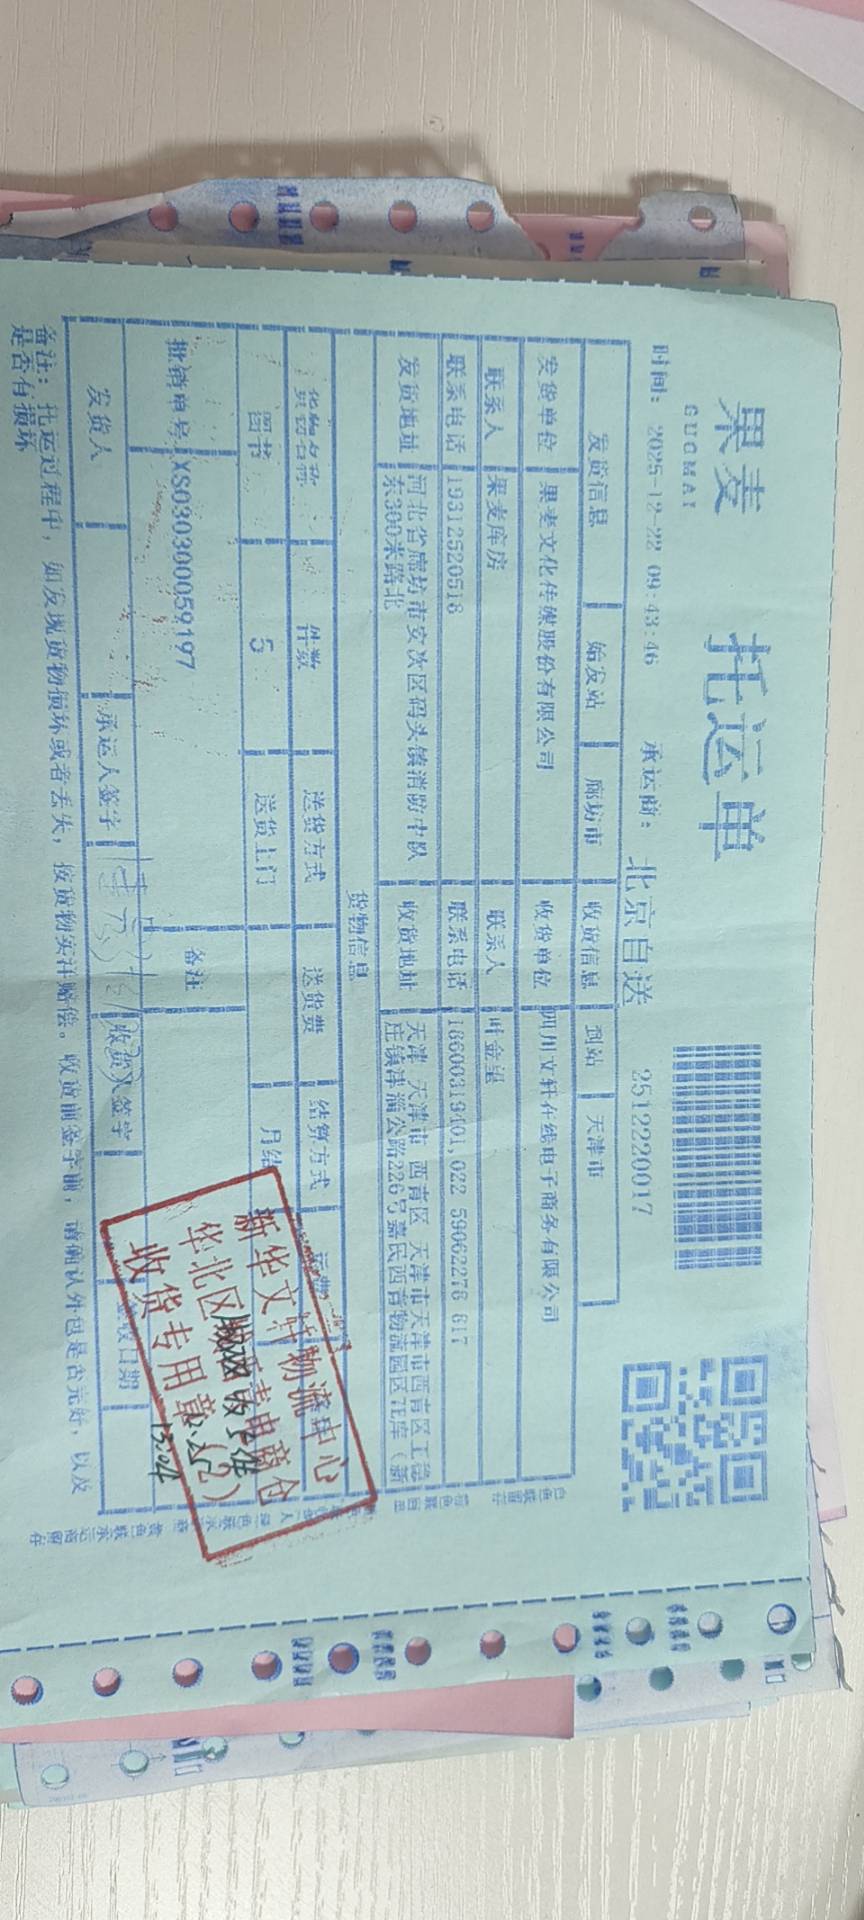 果麦
GUOMAI
托运单
时间： 2025-12-22 09:43:46 承运商： 北京自送 2512220017
发货信息 始发站 廊坊市 收货信息 到站 天津市
发货单位 果麦文化传媒股份有限公司 收货单位 四川文轩在线电子商务有限公司
联系人 果麦库房 联系人 叶金望
联系电话 19312520518 联系电话 18600319401,022 59062278 817
发货地址 河北省廊坊市安次区码头镇消防中队东300米路北 收货地址 天津 天津市 西青区 天津市天津市西青区
庄镇津淄公路226号嘉民西青物流园区 库（新
货物信息
货物名称 件数 送货方式 送货费 结算方式
图书 5 送货上门 月结
批销单号 XS030300059197 备注
发货人 承运人签字 收货人签字 签收日期
备注： 托运过程中，如发现货物损坏或者丢失，按货物实洋赔偿。收货前签字前，请确认外包是否完好，以及
是否有损坏
新华文轩物流中心
华北区 电商仓
收货专用章（2）
13:04